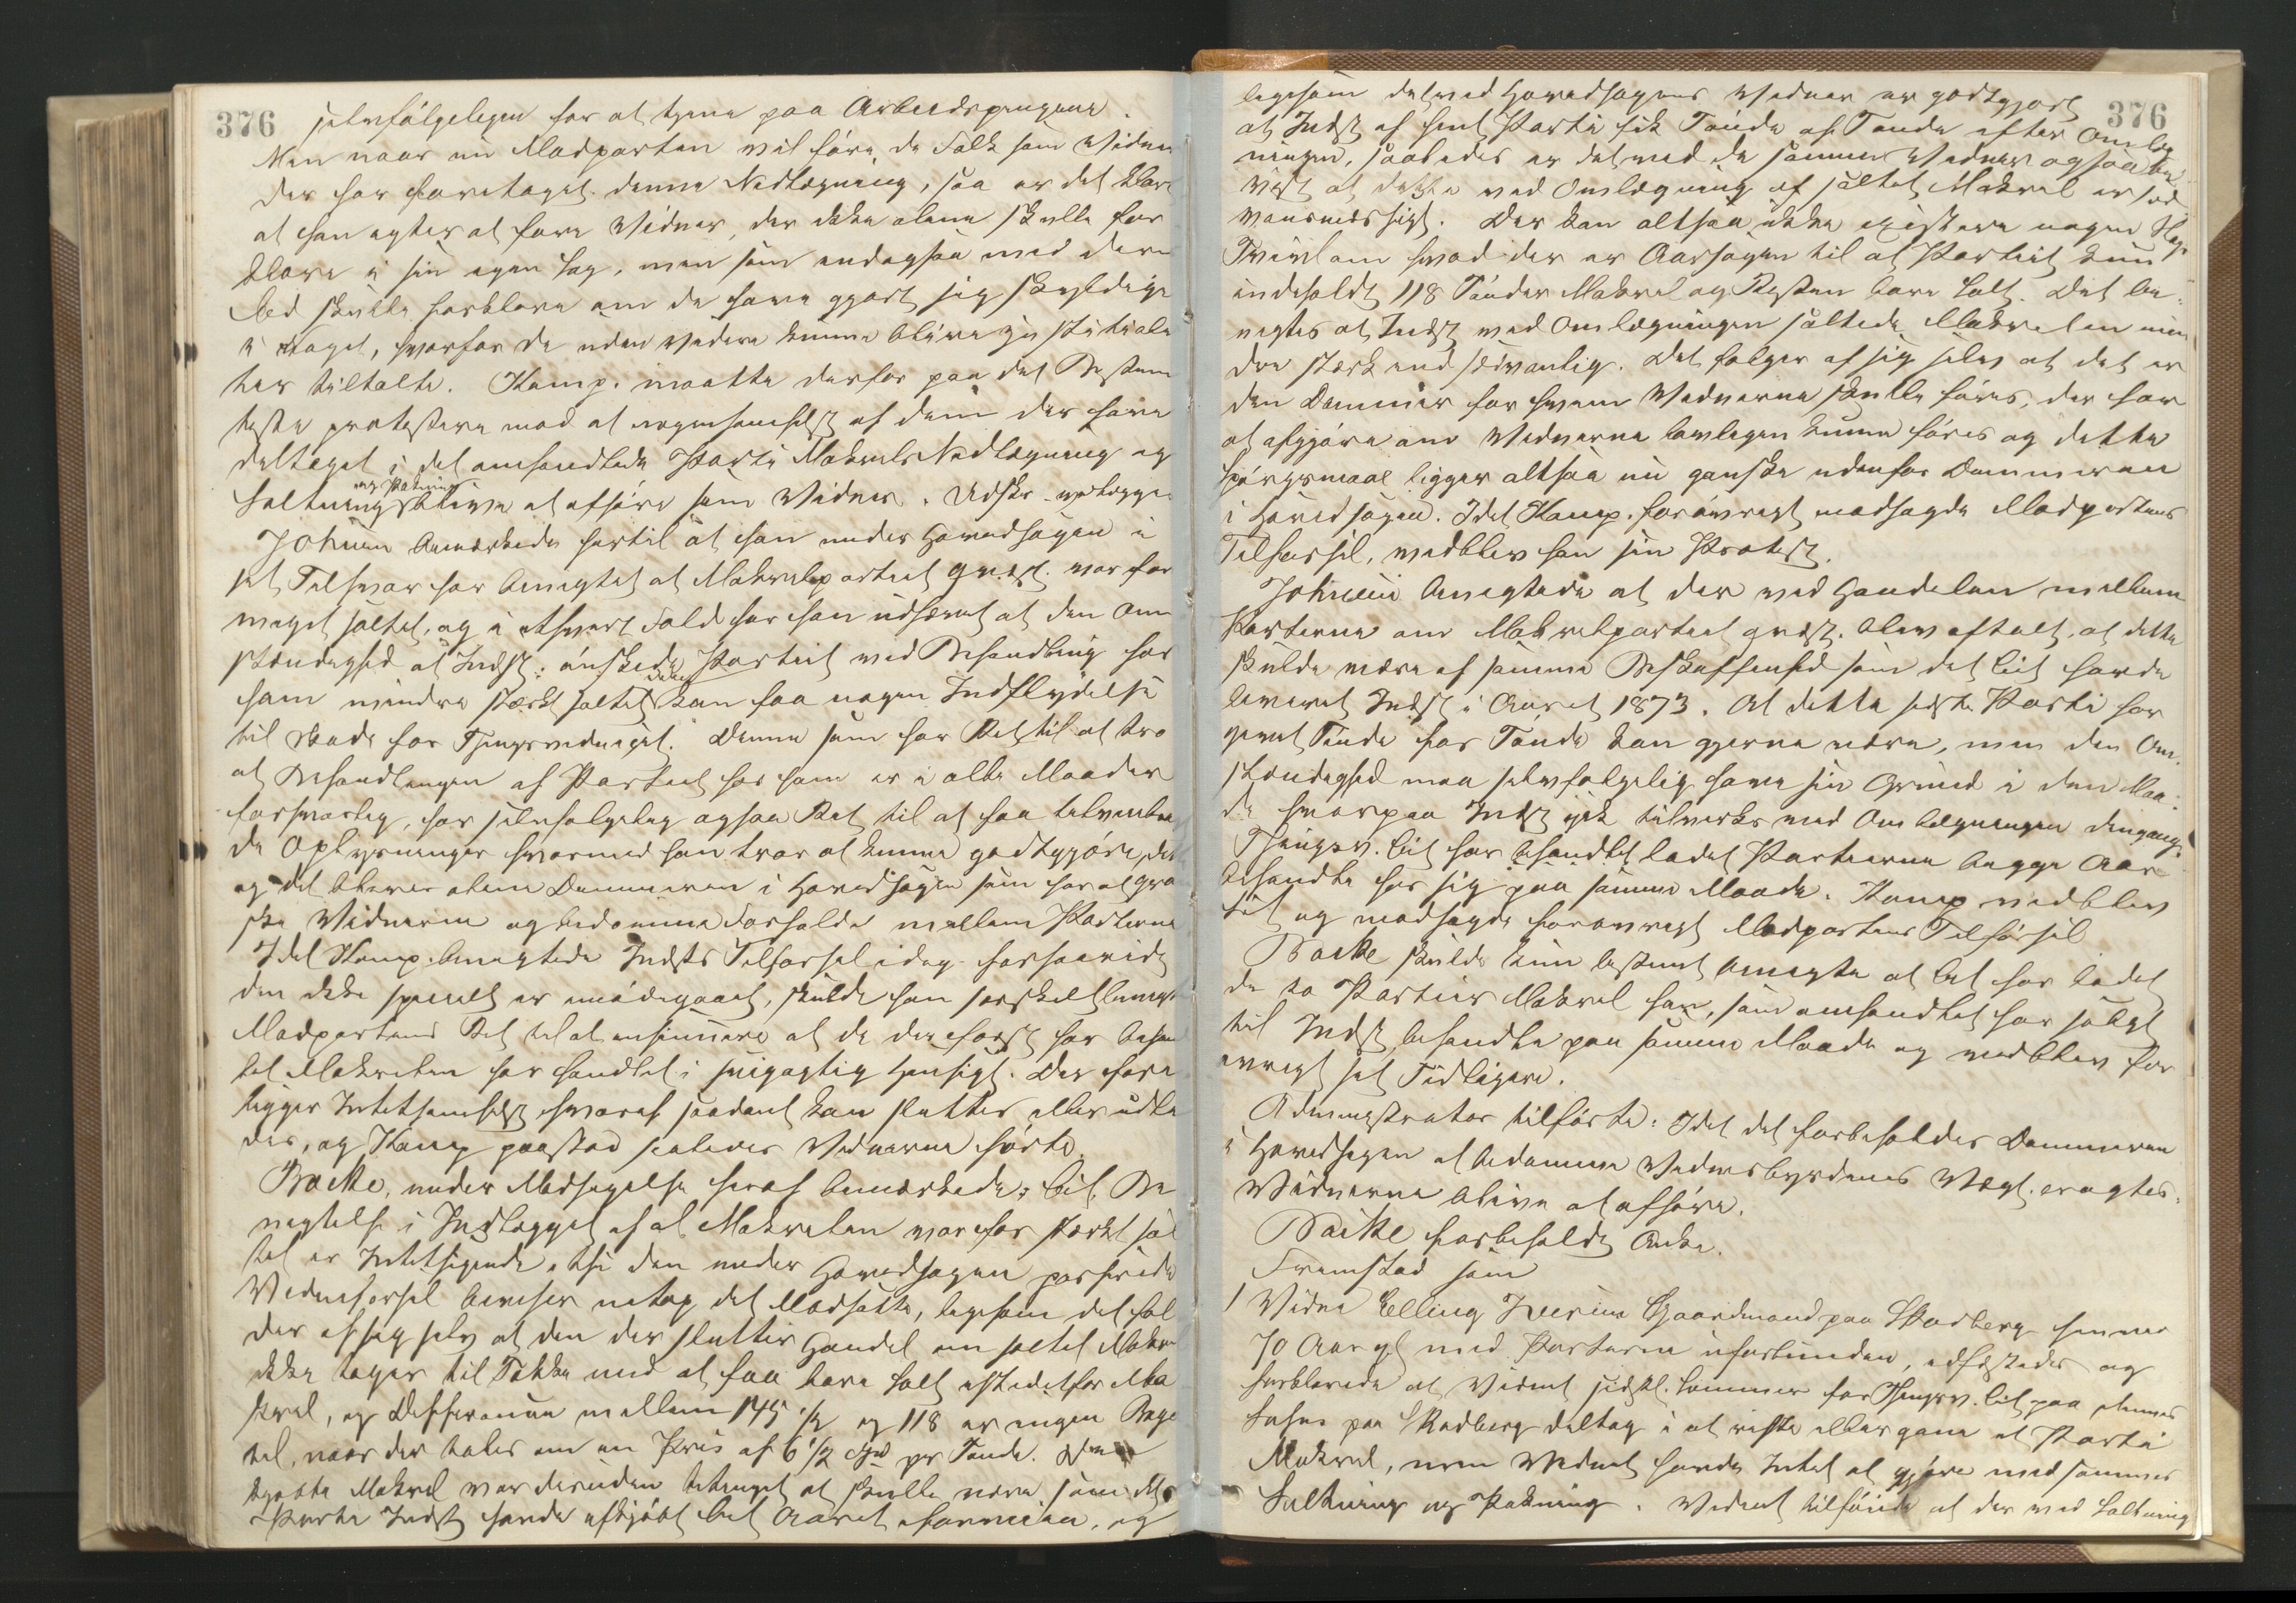 376
selvfølgeligen for at tjene paa Arbeidspengene.
Men naar nu Modparten vil føre de Folk som Vidner
der har foretaget denne Nedlægning, saa er det klart
at han agter at føre Vidner, der ikke alene skulle for
klare i sin egen Sag, men som endogsaa med deres
Ed skulle forklare om de have gjort sig skyldige
i noget, hvorfor de uden videre kunne blive
tiltalte. Kamp. maatte derfor paa det Bestem
teste protestere mod at nogensomhelst af dem der have
deltaget i det omhandlede Parti Makrels Nedlægning og
Saltning og Pakning blive at afhøre som Vidner.
Johnsen bemærkede hertil at han under Hovedsagen i
sit Tilsvar har benegtet at Makrelpartiet quæst. var for
meget saltet, og i ethvert Fald har han udhævet at den Om
stændighed at Indst. ønskede Partiet ved Behandling hos
ham mindre stærkt saltet ikke kan faa nogen Indflydelse
til Skade for Thingsvidnet. Denne som har Ret til at tro
at Behandlingen af Partiet hos ham er i alle Maader
forsvarlig, har selvfølgelig ogsaa Ret til at faa tilveiebragt
de Oplysninger hvormed han tror at kunne godtgjøre dette
og det bliver alene Dommeren i Hovedsagen som har at grand
ske Vidnerne og bedømme Forholdet mellem Parterne
Idet Kamp. benegtede Indsts Tilførsel idag forsaavidt
den ikke specielt er imødegaaet, skulde han særskilt benegte
Modpartens Ret til at insinuere at de der først har behand
let Makrelen har handlet i svigagtig Hensigt. Der fore
ligger Intetsomhelst hvoraf saadant kan sluttes eller udle
des, og Kamp paastod saaledes Vidnerne hørte.
Backe, under Modsigelse heraf bemærkede: Cit. Be
negtelse i Indlægget af at Makrelen var for stærkt sal
tet er Intetsigende, thi den under Hovedsagen passerede
Vidneførsel beviser netop det Modsatte, ligesom det føl
der af sig selv at den der slutter Handel om saltet Makrel
ikke tager til Takke med at faa bare Salt istedetfor Ma
krel, og Differencen mellem 145 1/2 og 118 er ingen Baga
tel, naar der tales om en Pris af 6 1/2 Spd pr Tønde.
kjøbte Makrel var desuden betinget at skulle være som det
Parti Indst havde afkjøbt Cit Aaret forinden, og
376
ligesom det ved Hovedsagens Vidner er godtgjort
at Indst af hint Parti fik Tønde af Tønde efter Omlæg
ningen, saaledes er det med de samme Vidner ogsaa be
vist at dette ved Omlægning af saltet Makrel er sæd
vansmæssigt. Der kan altsaa ikke existere nogen Slags
Tvivl om hvad der er Aarsagen til at Partiet kun
indeholdt 118 Tønder Makrel og Resten bare Salt. Det be
negtes at Indst ved Omlægningen saltede Makrelen min
dre stærk end sædvanlig. Det følger af sig selv at det er
den Dommer for hvem Vidnerne skulle føres, der har
at afgjøre om Vidnerne lovligen kunne føres og dette
Spørgsmaal ligger altsaa nu ganske udenfor Dommeren
i Hovedsagen. Idet Kamp. forøvrigt modsagde Modpartens
Tilførsel, vedblev han sin Protest.
Johnsen benegtede at der ved Handelen mellem
Parterne om Makrelpartiet quæst. blev aftalt, at dette
skulde være af samme Beskaffenhed som det Cit havde
leveret Indst i Aaret 1873. At dette sidste Parti har
givet Tønde for Tønde kan gjerne være, men den Om
stændighed maa selvfølgelig have sin Grund i den Maa
de hvorpaa Indst gik tilverks med Omlægningen dengang.
Thingsv. Cit har ladet Partierne begge Aar
behandle hos sig paa samme Maade. Kamp vedblev
sit og modsagde forøvrigt Modpartens Tilførsel
Backe skulde kun bestemt benegte at Cit har ladet
de to Partier Makrel han, som omhandlet har solgt
til Indst, behandle paa samme Maade og vedblev for
øvrigt sit Tidligere.
Administrator tilførte: Idet det forbeholdes Dommeren
i Hovedsagen at bedømme Vidnesbyrdenes Vægt, eragtes:
Vidnerne blive at afhøre.
Backe forbeholdt Anke.
Fremstod som
1 Vidne Elling Iversen Gaardmand paa Skarberg henved
70 Aar gl med Parterne uforbunden, edfæstedes og
forklarede at Vidnet sidstl. Sommer for Thingsv. Cit paa dennes
Søhus paa Skadberg deltog i at virke eller gane et Parti
Makrel, men Vidnet havde Intet at gjøre med sammes
Saltning og Pakning. Vidnet tilføiede at der ved Saltning